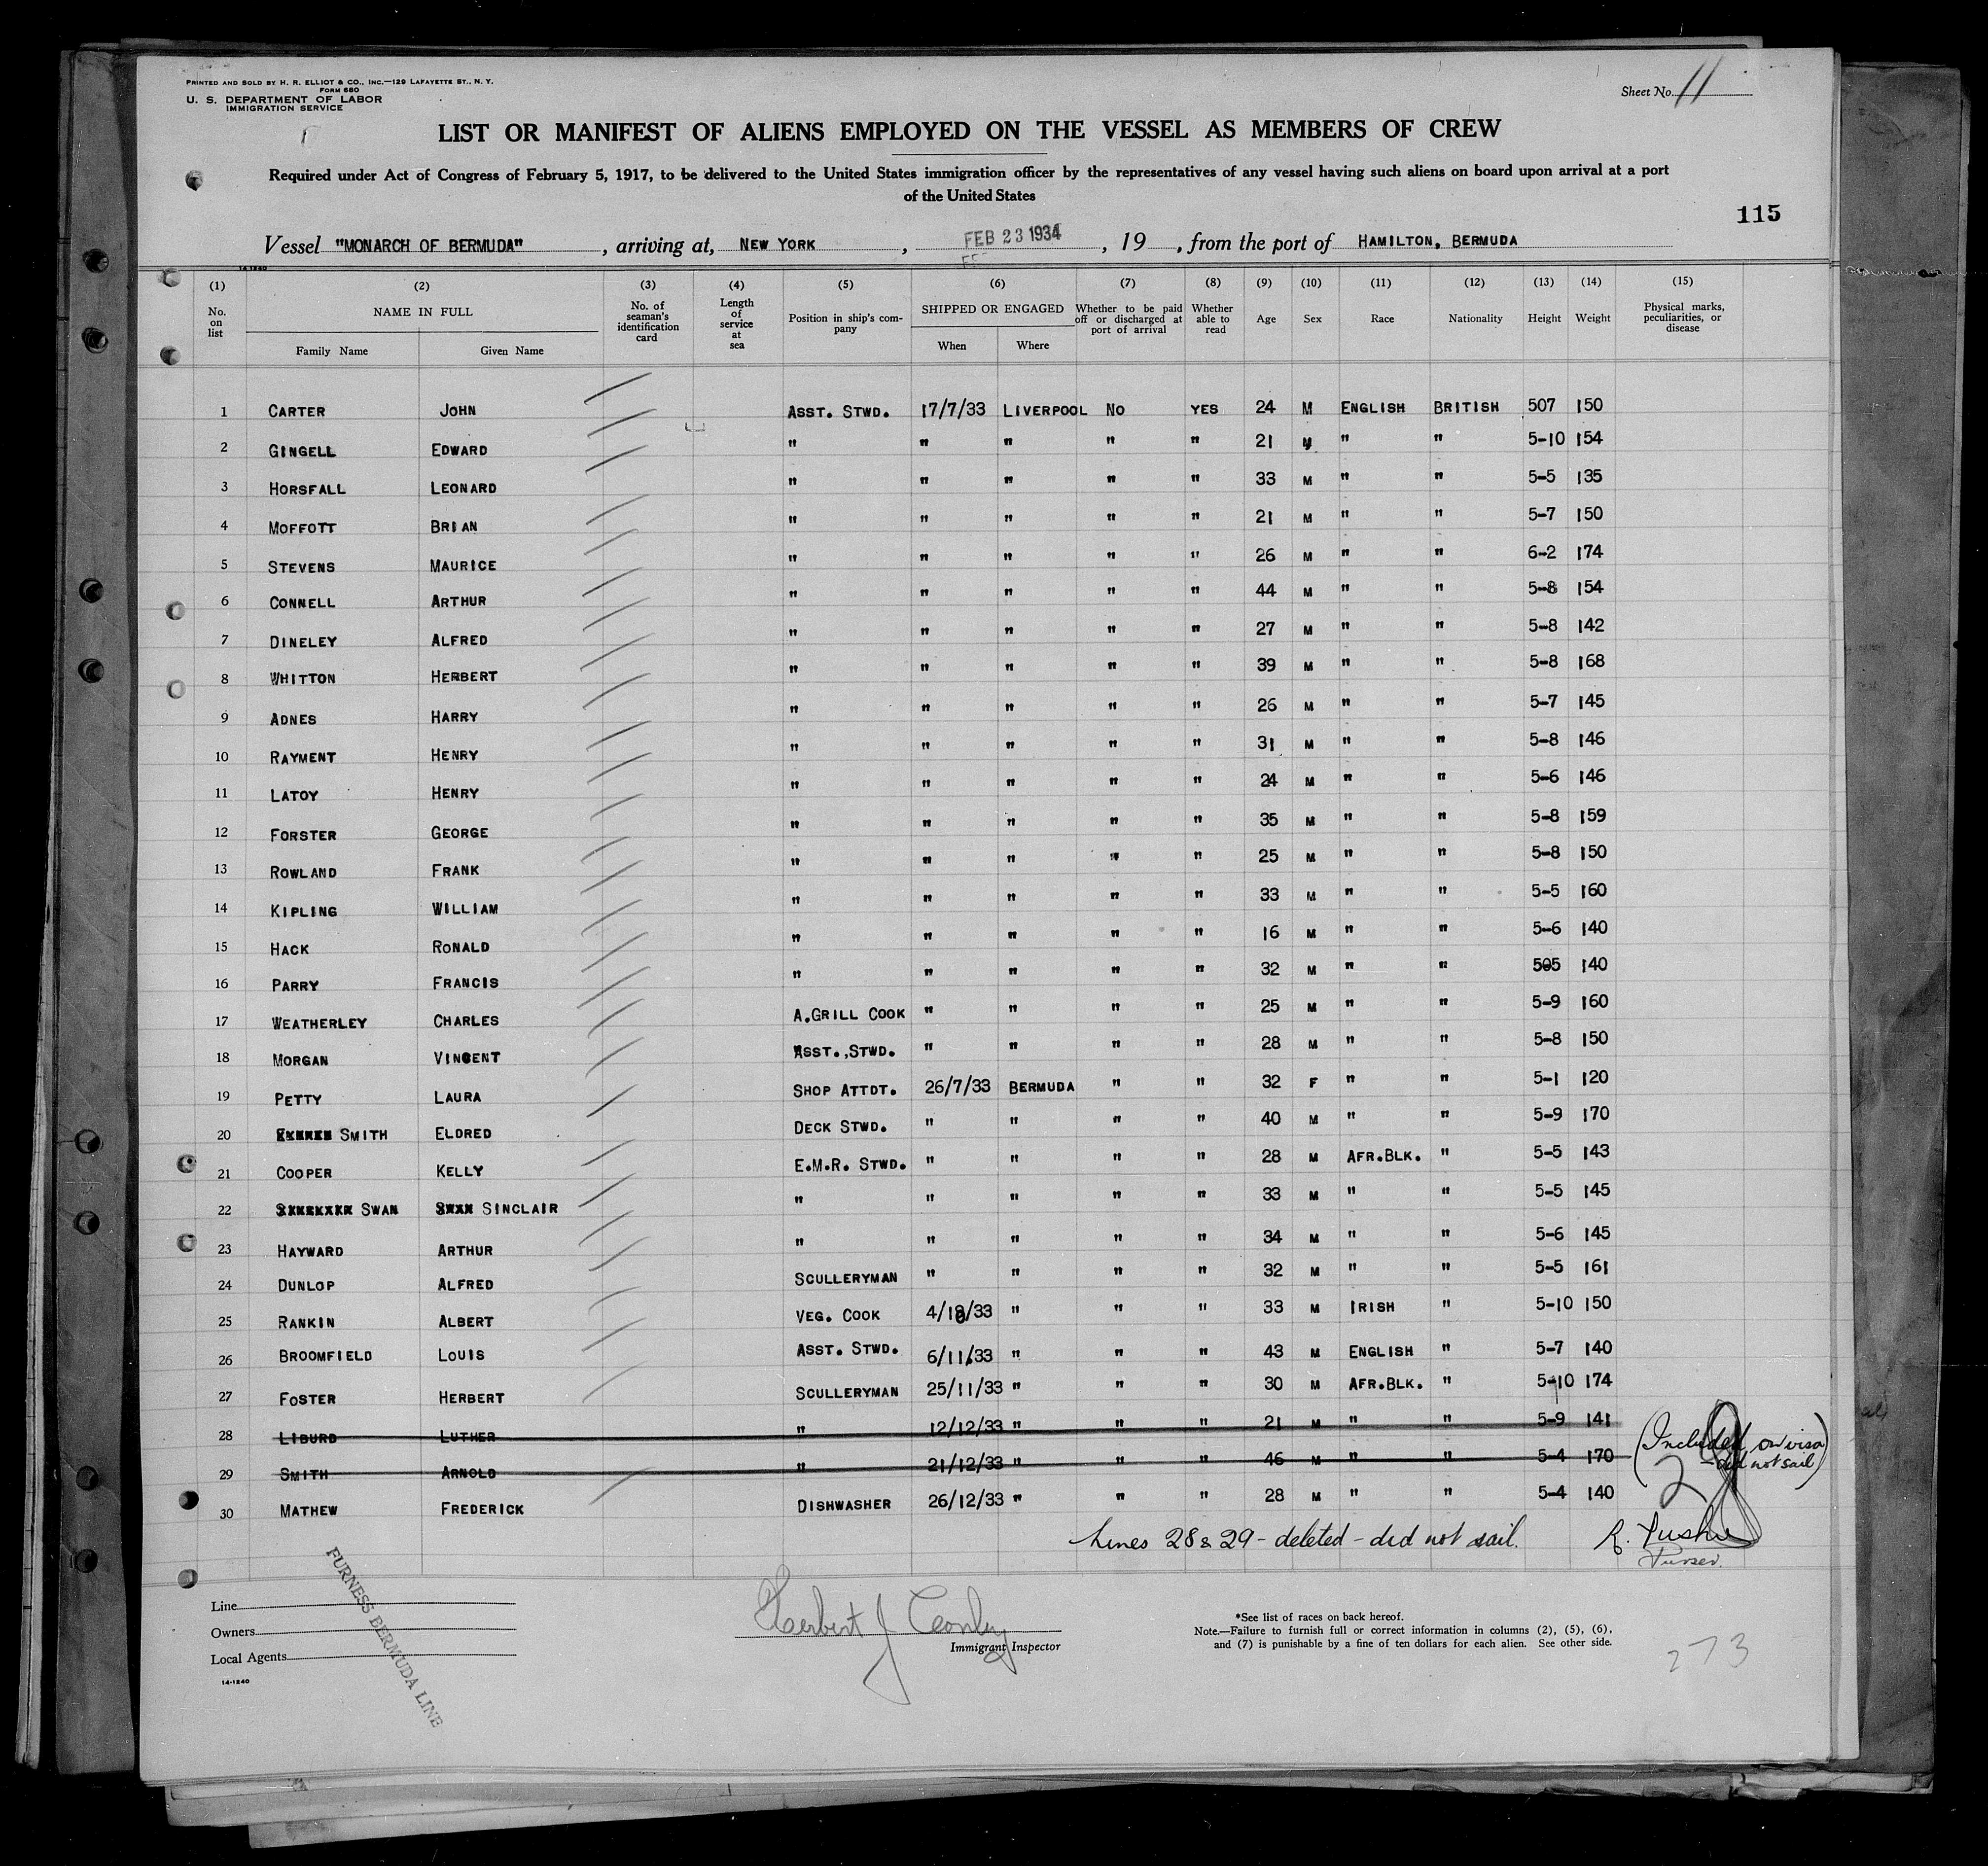 PRINTED AND SOLD BY H. R. ELLIOT & CO., INC.—129 LAFAYETTE ST., N. Y.
FORM 680
U. S. DEPARTMENT OF LABOR
IMMIGRATION SERVICE
Sheet No. 11
LIST OR MANIFEST OF ALIENS EMPLOYED ON THE VESSEL AS MEMBERS OF CREW
Required under Act of Congress of February 5, 1917, to be delivered to the United States immigration officer by the representatives of any vessel having such aliens on board upon arrival at a port
of the United States
115
Vessel "MONARCH OF BERMUDA", arriving at, NEW YORK, FEB 23 1934, 19, from the port of HAMILTON, BERMUDA
14-1240
(1) (2) (3) (4) (5) (6) (7) (8) (9) (10) (11) (12) (13) (14) (15)
No. on list NAME IN FULL Family Name Given Name No. of seaman's identification card Length of service at sea Position in ship's company SHIPPED OR ENGAGED When Where Whether to be paid off or discharged at port of arrival Whether able to read Age Sex Race Nationality Height Weight Physical marks, peculiarities, or disease
1 CARTER JOHN ASST. STWD. 17/7/33 LIVERPOOL NO YES 24 M ENGLISH BRITISH 507 150
2 GINGELL EDWARD " " " " " 21 M " " 5-10 154
3 HORSFALL LEONARD " " " " " 33 M " " 5-5 135
4 MOFFOTT BRIAN " " " " " 21 M " " 5-7 150
5 STEVENS MAURICE " " " " " 26 M " " 6-2 174
6 CONNELL ARTHUR " " " " " 44 M " " 5-8 154
7 DINELEY ALFRED " " " " " 27 M " " 5-8 142
8 WHITTON HERBERT " " " " " 39 M " " 5-8 168
9 ADNES HARRY " " " " " 26 M " " 5-7 145
10 RAYMENT HENRY " " " " " 31 M " " 5-8 146
11 LATOY HENRY " " " " " 24 M " " 5-6 146
12 FORSTER GEORGE " " " " " 35 M " " 5-8 159
13 ROWLAND FRANK " " " " " 25 M " " 5-8 150
14 KIPLING WILLIAM " " " " " 33 M " " 5-5 160
15 HACK RONALD " " " " " 16 M " " 5-6 140
16 PARRY FRANCIS " " " " " 32 M " " 505 140
17 WEATHERLEY CHARLES A.GRILL COOK " " " " 25 M " " 5-9 160
18 MORGAN VINCENT ASST.,STWD. " " " " 28 M " " 5-8 150
19 PETTY LAURA SHOP ATTDT. 26/7/33 BERMUDA " " 32 F " " 5-1 120
20 SMITH ELDRED DECK STWD. " " " " 40 M " " 5-9 170
21 COOPER KELLY E.M.R. STWD. " " " " 28 M AFR.BLK. " 5-5 143
22 SWAN SINCLAIR " " " " " 33 M " " 5-5 145
23 HAYWARD ARTHUR " " " " " 34 M " " 5-6 145
24 DUNLOP ALFRED SCULLERYMAN " " " " 32 M " " 5-5 161
25 RANKIN ALBERT VEG. COOK 4/18/33 " " " 33 M IRISH " 5-10 150
26 BROOMFIELD LOUIS ASST. STWD. 6/11/33 " " " 43 M ENGLISH " 5-7 140
27 FOSTER HERBERT SCULLERYMAN 25/11/33 " " " 30 M AFR.BLK. " 5-10 174
28 LIBURD LUTHER " 12/12/33 " " " 21 M " " 5-9 141
29 SMITH ARNOLD " 21/12/33 " " " 46 M " " 5-4 170
(Included on visa
– did not sail)
2
30 MATHEW FREDERICK DISHWASHER 26/12/33 " " " 28 M " " 5-4 140
Lines 28 & 29 – deleted – did not sail.
Purser.
FURNESS BERMUDA LINE
Line
Owners
Local Agents
14-1240
Herbert J
Immigrant Inspector
*See list of races on back hereof.
Note.—Failure to furnish full or correct information in columns (2), (5), (6),
and (7) is punishable by a fine of ten dollars for each alien. See other side.
273